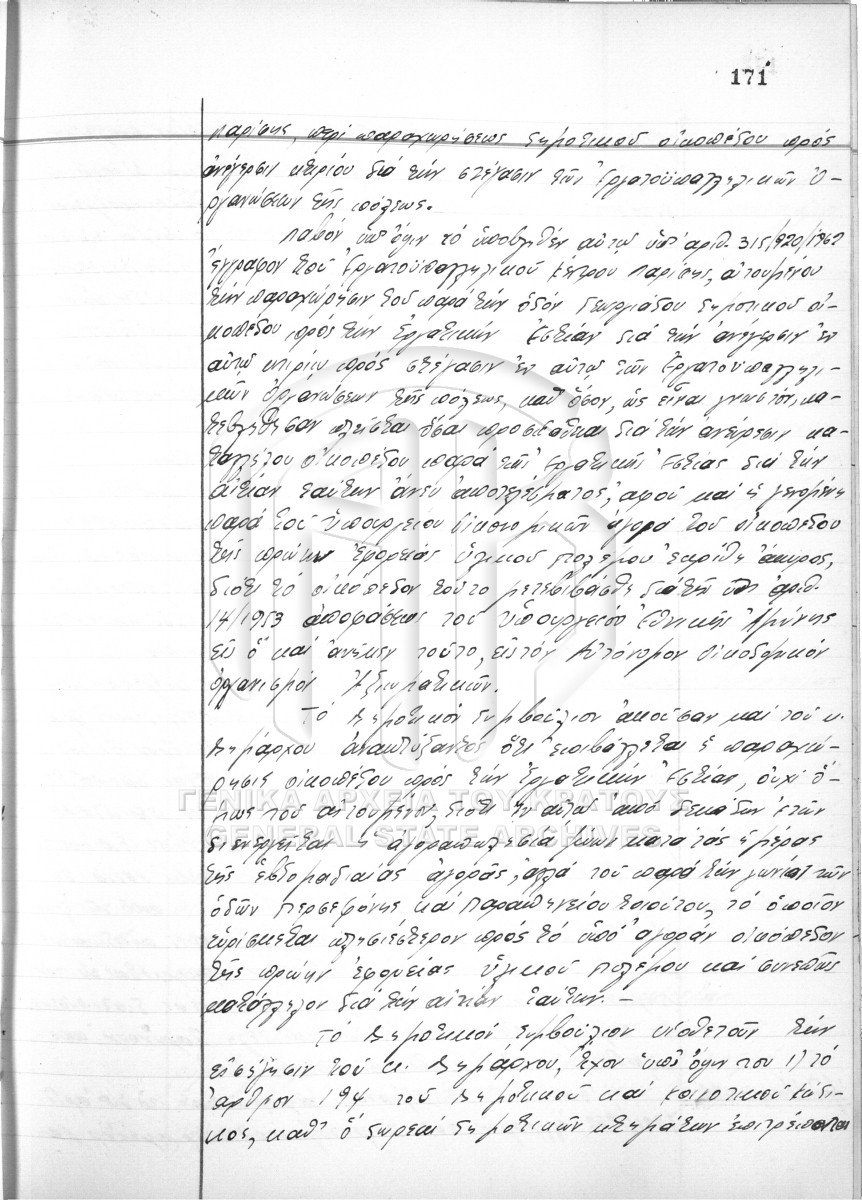 171
Λαρίσης, περί παραχωρήσεως δημοτικού οικοπέδου πρός
ανέγερσιν κτιρίου διά τήν στέγασιν τών Εργατοϋπαλληλικών Ο-
ργανώσεων τής πόλεως.
Λαβόν υπ' όψιν τό υποβληθέν αυτώ υπ' αριθ. 315/920/1962
έγγραφον τού Εργατοϋπαλληλικού Κέντρου Λαρίσης, αιτουμένου
τήν παραχώρησιν τού παρά τήν οδόν Γεωργιάδου δημοτικού οι-
κοπέδου πρός τήν Εργατικήν Εστίαν διά τήν ανέγερσιν εν
αυτώ κτιρίου πρός στέγασιν εν αυτώ τών Εργατοϋπαλληλι-
κών Οργανώσεων τής πόλεως, καθ' όσον, ώς είναι γνωστόν, κα-
τεβλήθησαν πλείσται όσαι προσπάθειαι διά τήν ανεύρεσιν κα-
ταλλήλου οικοπέδου παρά τής Εργατικής Εστίας διά τήν
αιτίαν ταύτην άνευ αποτελέσματος, αφού καί η γενομένη
παρά τού Υπουργείου Οικονομικών αγορά τού οικοπέδου
τής πρώην Εφορείας Υλικού Πολέμου εκρίθη άκυρος,
διότι τό οικόπεδον τούτο μετεβιβάσθη διά τής υπ' αριθ.
14/1953 αποφάσεως τού Υπουργείου Εθνικής Αμύνης
εις ό καί ανήκεν τούτο, εις τόν Αυτόνομον Οικοδομικόν
Οργανισμόν Αξιωματικών.
Τό Δημοτικόν Συμβούλιον ακούσαν καί τού κ.
Δημάρχου αναπτύξαντος ότι επιβάλλεται η παραχώ-
ρησις οικοπέδου πρός τήν Εργατικήν Εστίαν, ουχί ό-
μως τού αιτουμένου, διότι εν αυτώ από δεκάδων ετών
διενεργείται η αγοραπωλησία ζώων κατά τάς ημέρας
τής εβδομαδιαίας αγοράς, αλλά τού παρά τήν γωνίαν τών
οδών Περσεφόνης καί Παραπηνείου τοιούτου, τό οποίον
ευρίσκεται πλησιέστερον πρός τό υπό αγοράν οικόπεδον
τής πρώην εφορείας υλικού πολέμου καί συνεπώς
κατάλληλον διά τήν αιτίαν ταύτην. –
Τό Δημοτικόν Συμβούλιον υιοθετούν τήν
εισήγησιν τού κ. Δημάρχου, έχον υπ' όψιν του 1) τό
άρθρον 194 τού Δημοτικού καί Κοινοτικού Κώδι-
κος, καθ' ό δωρεαί δημοτικών κτημάτων επιτρέπονται
ΓΕΝΙΚΑ ΑΡΧΕΙΑ ΤΟΥ ΚΡΑΤΟΥΣ
GENERAL STATE ARCHIVES